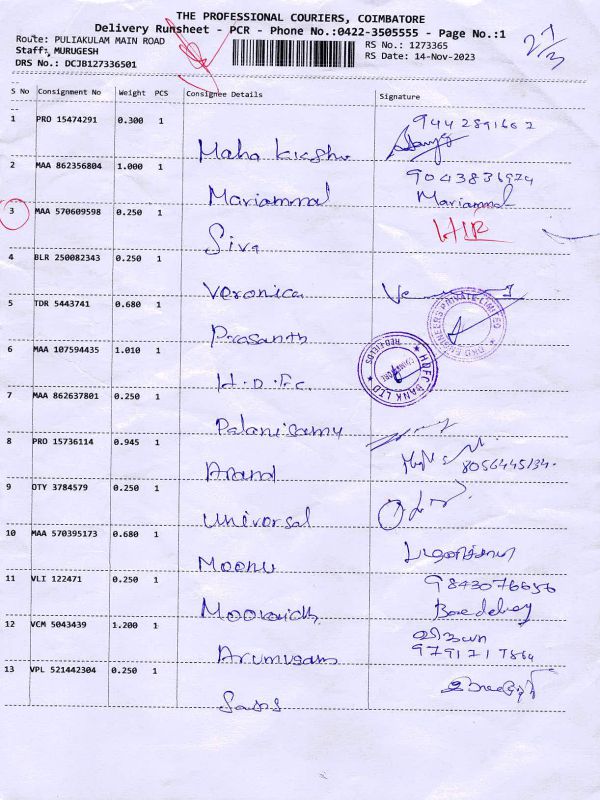 THE PROFESSIONAL COURIERS, COIMBATORE
Delivery Runsheet - PCR - Phone No.:0422-3505555 - Page No.:1
Route: PULIAKULAM MAIN ROAD
Staff: MURUGESH
DRS No.: DCJB127336501
RS No.: 1273365
RS Date: 14-Nov-2023
27/3
S No Consignment No Weight PCS Consignee Details Signature
1 PRO 15474291 0.300 1 Maha 9442891662
2 MAA 862356804 1.000 1 Mariammal 9043836924
Mariammal
3 MAA 570609598 0.250 1 Siva
4 BLR 250082343 0.250 1 Veronica
5 TDR 5443741 0.680 1 Prasanth
ENGINEERS PRIVATE LIMITED
6 MAA 107594435 1.010 1 H.D.F.C.
HDFC BANK LTD
RED FIELDS
7 MAA 862637801 0.250 1 Palanisamy
8 PRO 15736114 0.945 1 Anand 8056445134
9 OTY 3784579 0.250 1 Universal
10 MAA 570395173 0.680 1 Moonu
11 VLI 122471 0.250 1 9843076656
12 VCM 5043439 1.200 1 Arumugam
9791217864
13 VPL 521442304 0.250 1